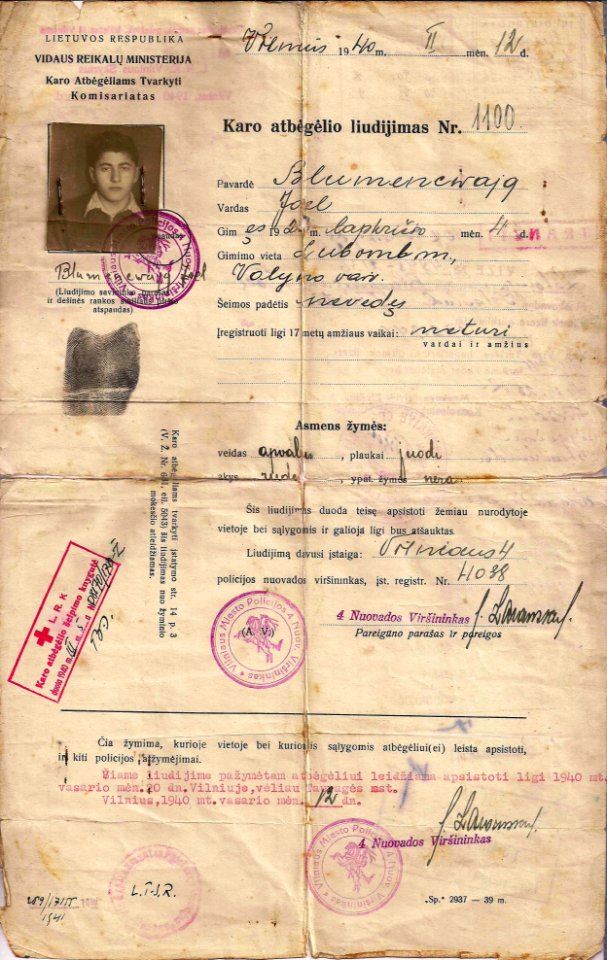 LIETUVOS RESPUBLIKA
VIDAUS REIKALŲ MINISTERIJA
Karo Atbėgėliams Tvarkyti
Komisariatas
Vilnius 1940 m. II mėn. 12 d.
Karo atbėgėlio liudijimas Nr. 1100
Pavardė Blumencwajg
Vardas Joel
Gim. 192 m. lapkričio mėn. 4 d.
Gimimo vieta Lubomlm,
Volyno vaiv.
Šeimos padėtis nevedęs
Įregistruoti ligi 17 metų amžiaus vaikai: neturi
vardai ir amžius
Blumencwajg Joel
(Liudijimo savininko parašas
ir dešinės rankos
atspaudas)
Asmens žymės:
veidas apvalus, plaukai juodi
akys, ypat. žymės nėra
Karo atbėgėliams tvarkyti įstatymo str. 14 p. 3
(V. Ž. Nr., eil. 5043) šis liudijimas nuo žyminio
mokesčio atleidžiamas.
Šis liudijimas duoda teisę apsistoti žemiau nurodytoje
vietoje bei sąlygomis ir galioja ligi bus atšauktas.
Liudijimą davusi įstaiga: Vilniaus 4
policijos nuovados viršininkas, įst. registr. Nr. 4038
4 Nuovados Viršininkas
(A. V.) Pareigūno parašas ir pareigos
Vilniaus Miesto Policijos 4 Nuov. Viršininkas
L. R. K
Karo atbėgėlio šelpimo knygutė
duota 1940 m. III m. 5 d. N
Čia žymima, kurioje vietoje bei kuriomis sąlygomis atbėgėliui(ei) leista apsistoti,
ir kiti policijos atžymėjimai.
Šiame liudijime pažymėtam atbėgėliui leidžiama apsistoti ligi 1940 mt.
vasario mėn. 20 dn. Vilniuje, vėliau Tauragės mst.
Vilnius, 1940 mt. vasario mėn. 12 dn.
4 Nuovados Viršininkas
Vilniaus Miesto Policijos 4 Nuov. Viršininkas
L.T.S.R.
1941
„Sp." 2937 — 39 m.